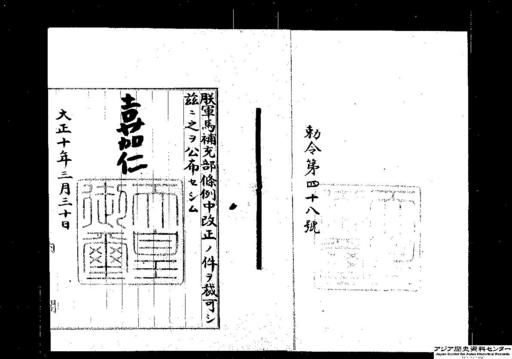 勅令第四十八號
朕軍馬補充部條例中改正ノ件ヲ裁可シ
茲ニ之ヲ公布セシム
嘉仁
天皇御璽
大正十年三月三十日
アジア歴史資料センター
Japan Center for Asian Historical Records